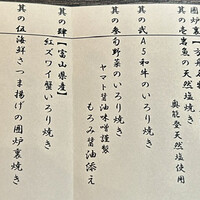 其の壱
岩魚の天然塩焼き
奥能登天然塩使用
其の弐
A5和牛のいろり焼き
其の参
旬野菜のいろり焼き
ヤマト醤油味噌謹製
もろみ醤油添え
其の肆【富山県産】
紅ズワイ蟹いろり焼き
其の伍
海鮮さつま揚げの囲炉裏焼き